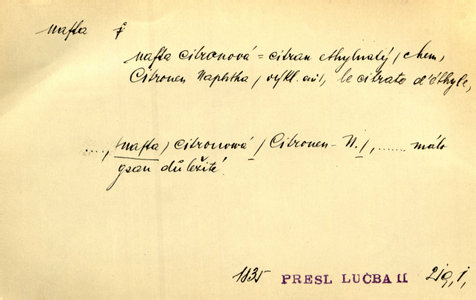 nafta f
nafta citronová = citran ethylnatý, chem,
Citronen Naphtha, vykl. aut, le citrate d'éthyle,
...., nafta, citronová / Citronen - N. /, ...... málo
jsau důležité
1835 PRESL LUČBA II 219,